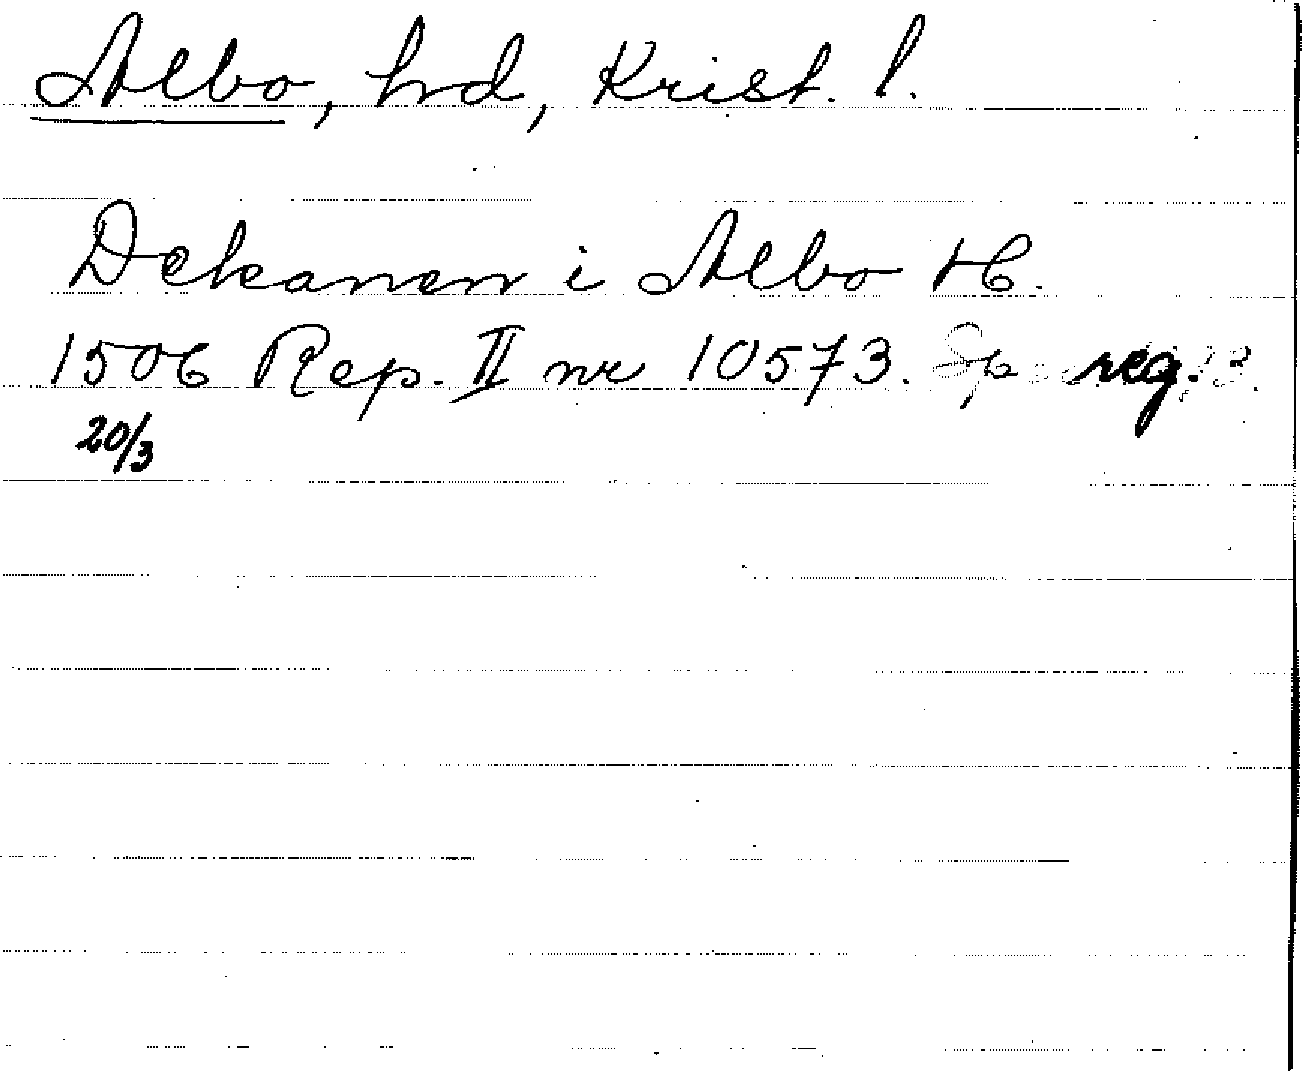 Albo, hrd, Krist. l.
Dekanen i Albo H.
1506 Rep. II nr 10573. reg.
20/3